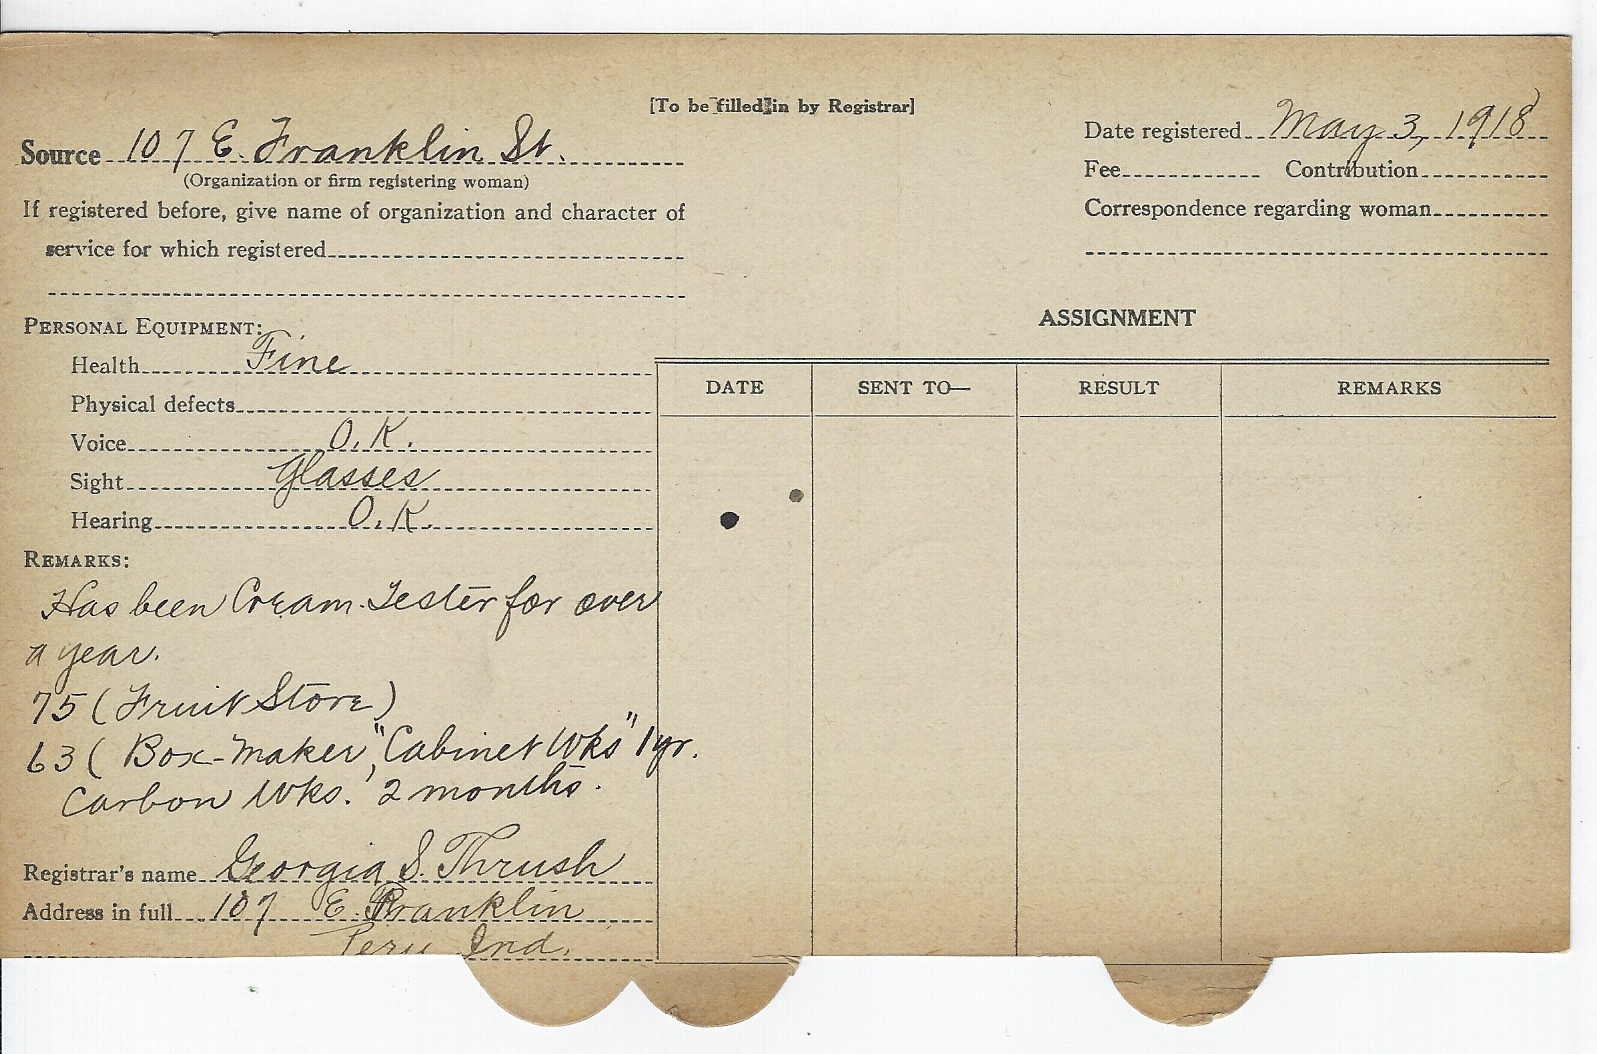 [To be filled in by Registrar]
Source 107 E. Franklin St.
(Organization or firm registering woman)
If registered before, give name of organization and character of
service for which registered
Date registered May 3, 1918
Fee Contribution
Correspondence regarding woman
PERSONAL EQUIPMENT:
Health Fine
Physical defects
Voice O.K.
Sight Glasses
Hearing O.K.
REMARKS:
Has been Cream Tester for over
a year.
75 (Fruit Store)
63 ( Box-Maker, "Cabinet Wks" 1 yr.
Carbon Wks. 2 months.
Registrar's name Georgia S. Thrush
Address in full 107 E. Franklin
Peru Ind.
ASSIGNMENT
DATE SENT TO— RESULT REMARKS